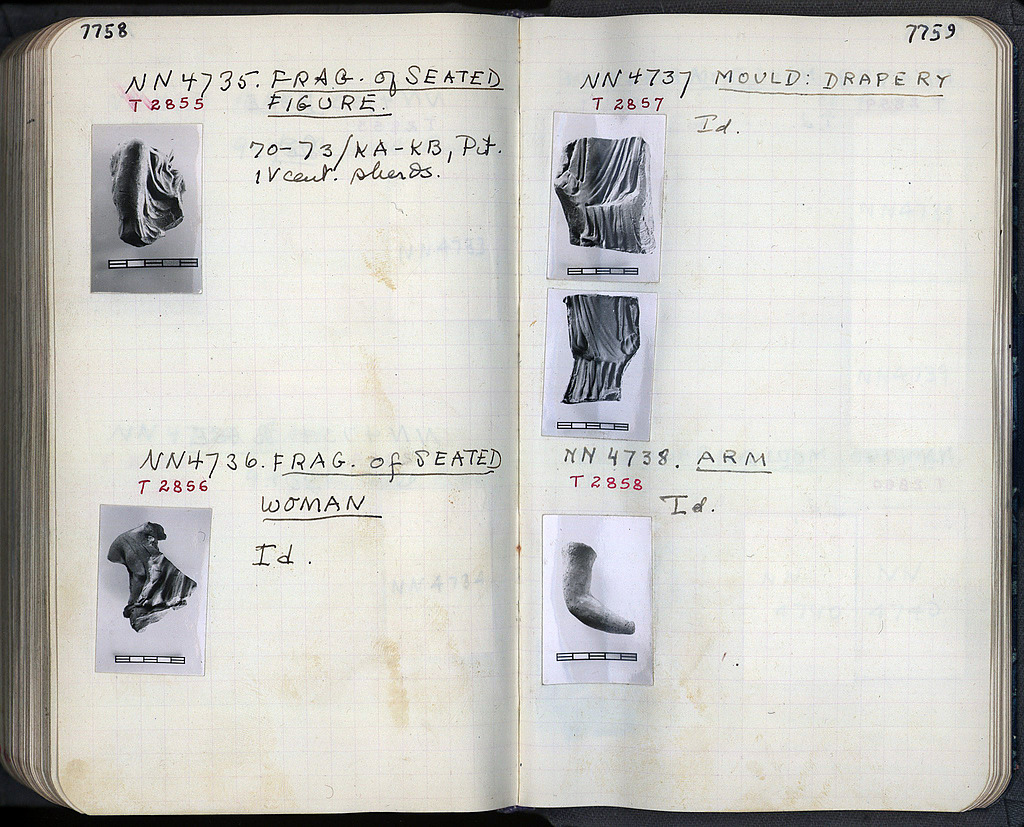 7758
NN 4735. FRAG. of SEATED
T 2855
FIGURE.
70-73/KA-KB, Pit.
IV cent. sherds.
NN4736. FRAG. of SEATED
T 2856
WOMAN
Id.
7759
NN 4737 MOULD: DRAPERY
T 2857
Id.
NN 4738. ARM
T 2858
Id.